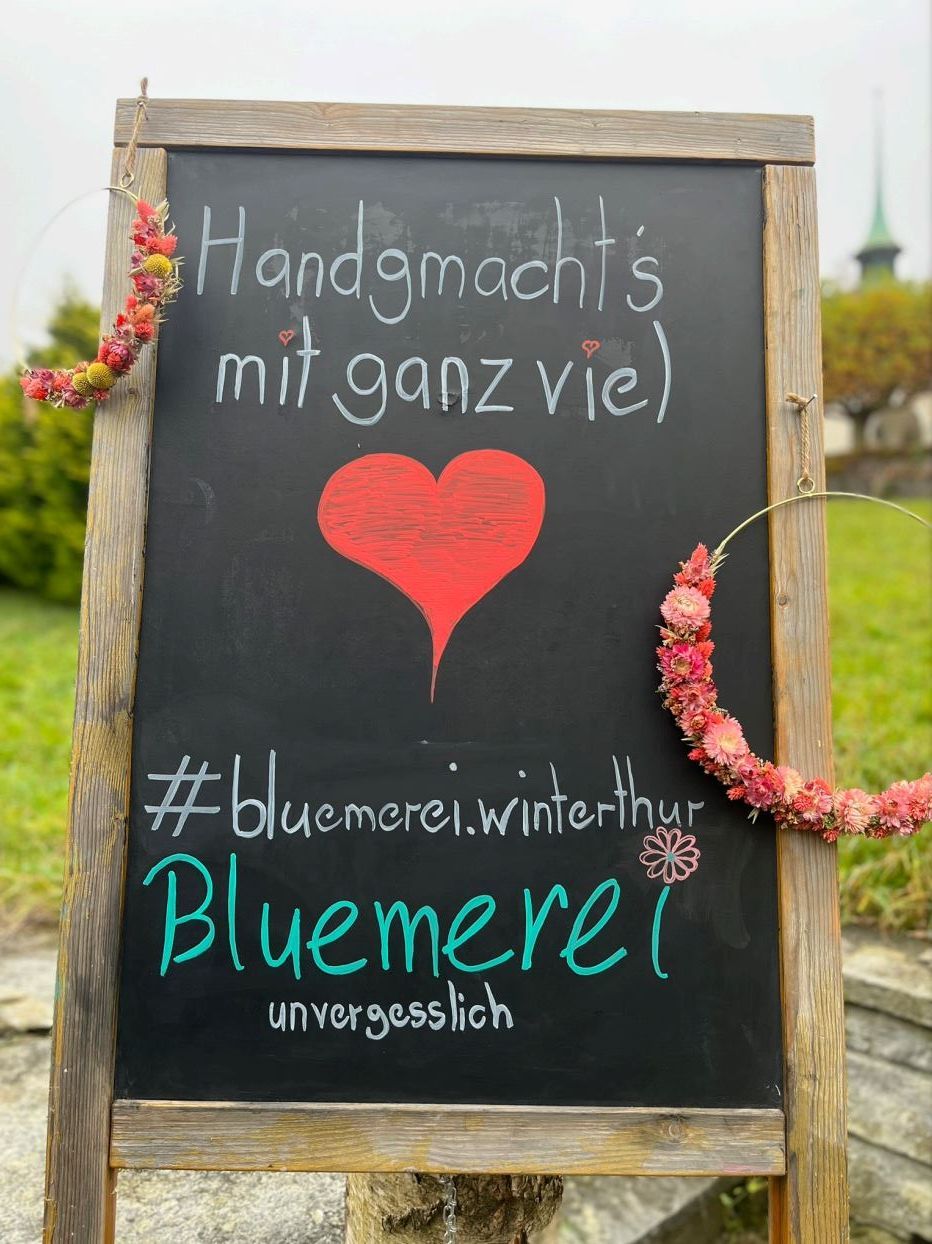 Handgmacht's
mit ganz viel
#bluemerei.winterthur
Bluemerei
unvergesslich